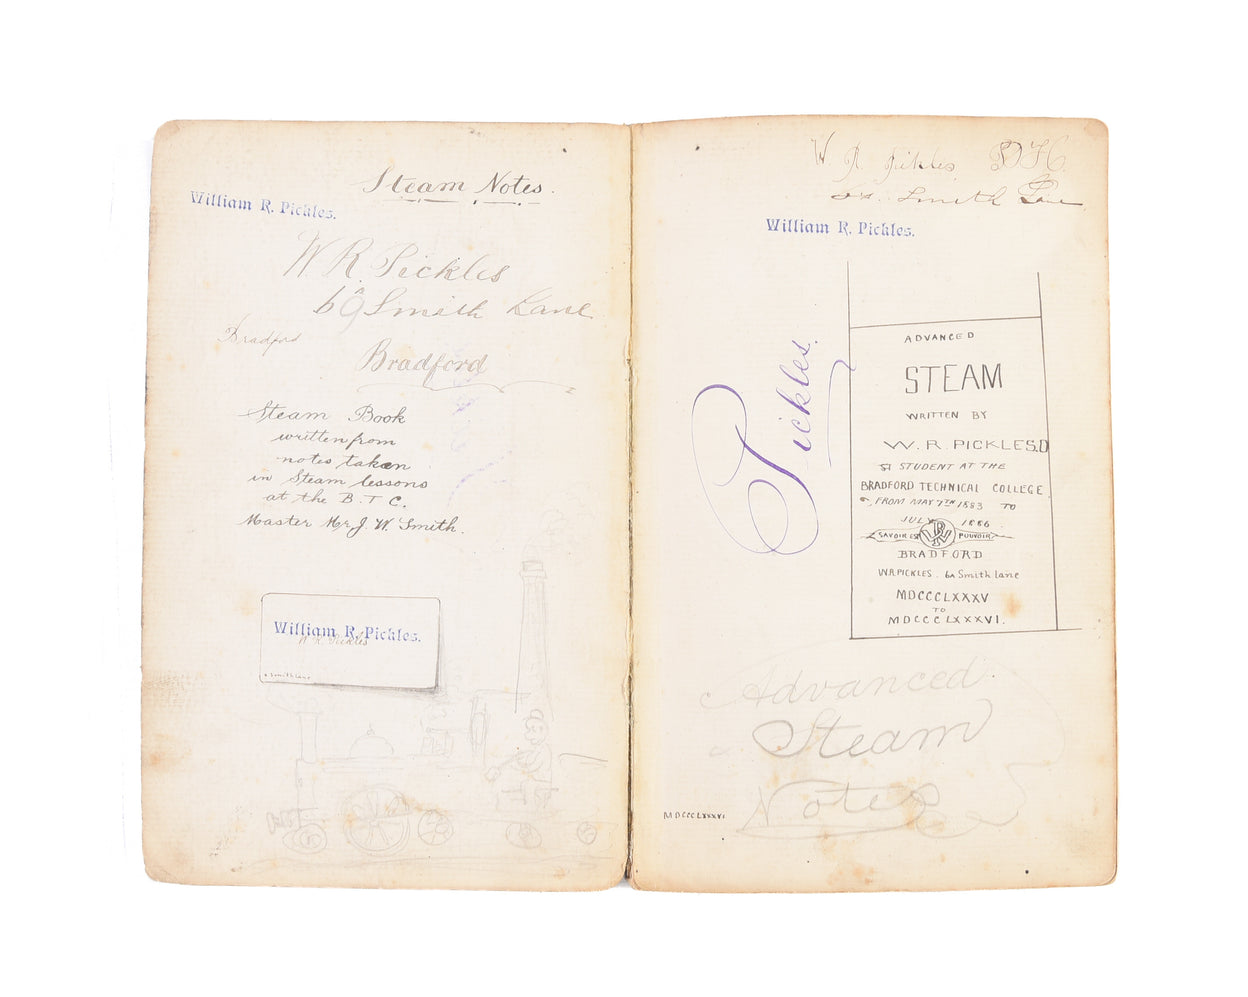 Steam Notes.
William R. Pickles.
W R Pickles
6A Smith Lane
Bradford
Bradford
Steam Book
written from
notes taken
in Steam lessons
at the B. T C.
Master Mr J. W. Smith.
William R. Pickles.
W R Pickles
Smith Lane
W R Pickles
Smith Lane
William R. Pickles.
Pickles.
ADVANCED
STEAM
WRITTEN BY
W. R. PICKLES.
STUDENT AT THE
BRADFORD TECHNICAL COLLEGE
FROM MAY 7TH 1883 TO
JULY 1886
SAVOIR EST POUVOIR
BRADFORD
W.R.PICKLES. 6A Smith Lane
MDCCCLXXXV
TO
MDCCCLXXXVI.
Advanced
Steam
Notes
MDCCCLXXXVI